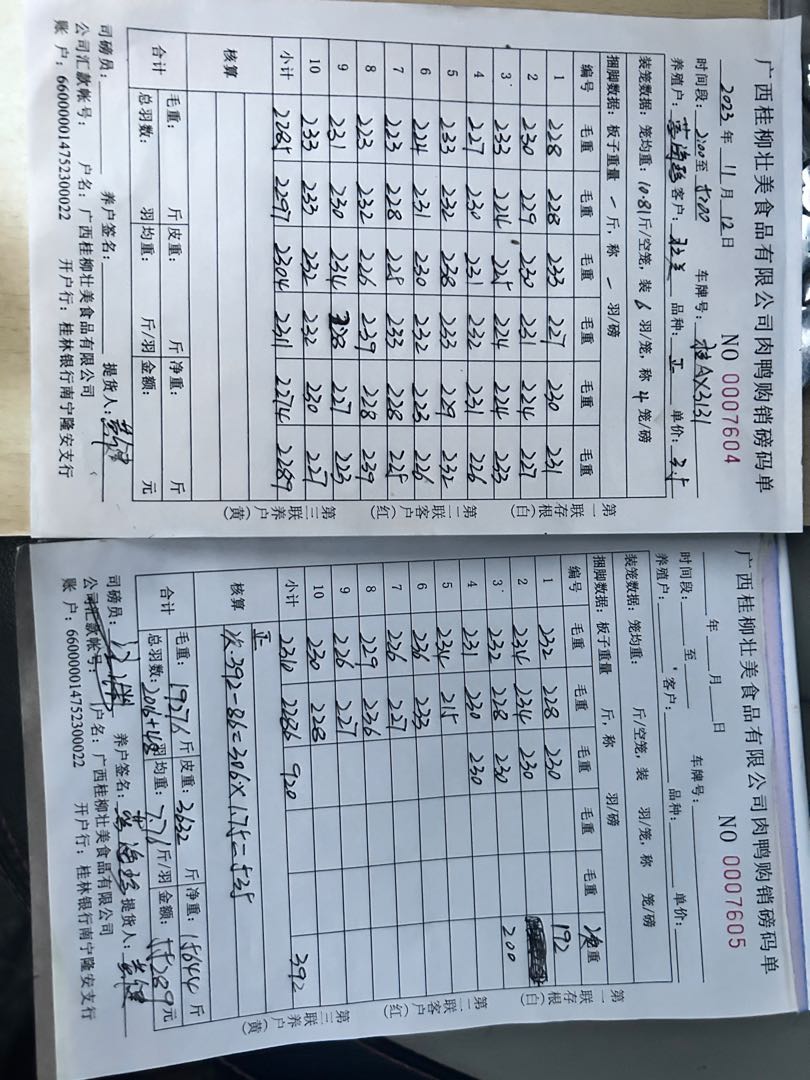 广西桂柳壮美食品有限公司肉鸭购销磅码单
2023年11月12日 NO 0007604
时间段: 2:00至5:00 车牌号: 桂AX3131
养殖户: 客户: 壮美 品种: 正 单价: 3.5
装笼数据: 笼均重: 10.81斤/空笼, 装6羽/笼, 称4笼/磅
捆脚数据: 板子重量 一 斤, 称 一 羽/磅
编号 毛重 毛重 毛重 毛重 毛重 毛重
1 228 228 233 227 230 231
2 230 229 230 231 224 227
3 233 224 225 224 224 233
4 227 230 231 232 231 226
5 233 232 238 233 229 232
6 224 231 230 232 223 226
7 223 228 225 233 228 225
8 223 232 226 239 228 239
9 231 230 234 228 227 223
10 233 233 232 232 230 227
小计 2285 2297 2304 2311 2274 2289
核算
合计 毛重: 斤 皮重: 斤 净重: 斤
总羽数: 羽 均重: 斤/羽 金额: 元
司磅员: 养户签名: 提货人:
公司汇款帐号: 户名: 广西桂柳壮美食品有限公司
账户: 660000014752300022 开户行: 桂林银行南宁隆安支行
第一联存根(白)
第二联客户(红)
第三联养户(黄)
广西桂柳壮美食品有限公司肉鸭购销磅码单
年 月 日 NO 0007605
时间段: 至 车牌号:
养殖户: 客户: 品种: 单价:
装笼数据: 笼均重: 斤/空笼, 装 羽/笼, 称 笼/磅
捆脚数据: 板子重量 斤, 称 羽/磅
编号 毛重 毛重 毛重 毛重 毛重 次重
1 232 228 230 192
2 234 234 230
3 232 228 230 200
4 231 230 230
5 234 215
6 236 233
7 226 227
8 229 236
9 226 227
10 230 228
小计 2310 2286 920 392
核算 正
次.392-86=306×1.75=535
合计 毛重: 19276斤 皮重: 3632斤 净重: 15644斤
总羽数: 2016+48羽 均重: 7.76斤/羽 金额: 55289元
司磅员: 养户签名: 提货人:
公司汇款帐号: 户名: 广西桂柳壮美食品有限公司
账户: 660000014752300022 开户行: 桂林银行南宁隆安支行
第一联存根(白)
第二联客户(红)
第三联养户(黄)